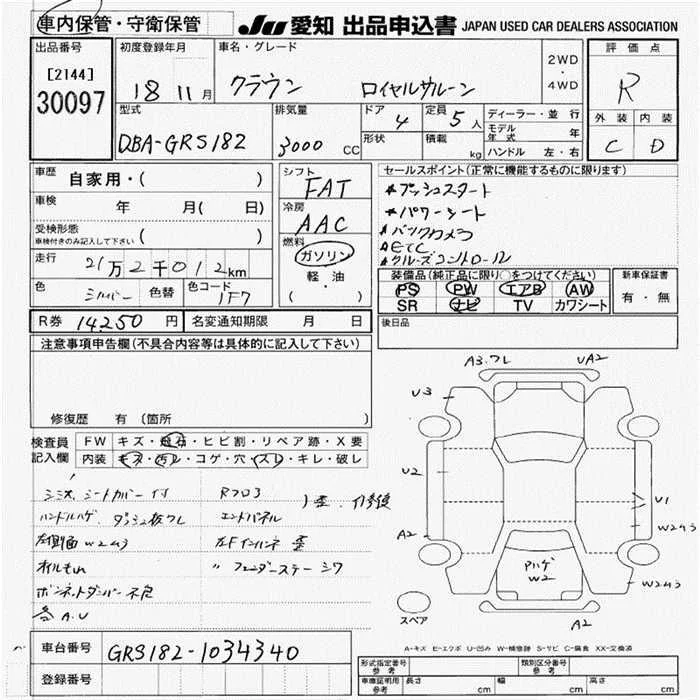 車内保管・守衛保管
JU 愛知 出品申込書 JAPAN USED CAR DEALERS ASSOCIATION
出品番号
[2144]
30097
初度登録年月
18 11月
車名・グレード
クラウン ロイヤルサルーン
2WD
・
4WD
評価点
R
外装 内装
C D
型式
DBA-GRS182
排気量
3000 CC
ドア
4
定員
5人
形状
積載
kg
ディーラー・並行
モデル年式 年
ハンドル 左・右
車歴
自家用・( )
車検
年 月( 日)
受検形態
車検付きのみ記入して下さい ( )
走行
21万2千012km
色
シルバー
色替
色コード
1F7
シフト
FAT
冷房
AAC
燃料
ガソリン
・
軽・油
( )
セールスポイント(正常に機能するものに限ります)
★プッシュスタート
★パワーシート
★バックカメラ
★ETC
★クルーズコントロール
装備品(純正品に限り○をつけてください)
PS PW エアB AW
SR ナビ TV カワシート
新車保証書
有・無
R券 14250 円
名変通知期限 月 日
後日品
注意事項申告欄(不具合内容等は具体的に記入して下さい)
修復歴 有(箇所
検査員
記入欄
FW キズ・飛石・ヒビ割・リペア跡・X要
内装 キズ・汚レ・コゲ・穴・スレ・キレ・破レ
シミ、シートカバー付
ハンドルハゲ、ダッシュ板ワレ
左側面W2 U3
オイルもれ
ボンネットダンパー不良
各A.U
Rフロア
エンドパネル
左Fインハネ
〃 フェンダーステー シワ
A3.ワレ
UA2
U3
U2
A2
U1
W2 U3
W2 U3
Pハゲ
W2
A2
スペア
A-キズ E-エクボ U-凹み W-補修跡 S-サビ C-腐食 XX-交換済
車台番号
GRS182-1034340
登録番号
形式指定番号
参考
類別区分番号
参考
車庫証明用
参考
長さ cm
幅 cm
高さ cm